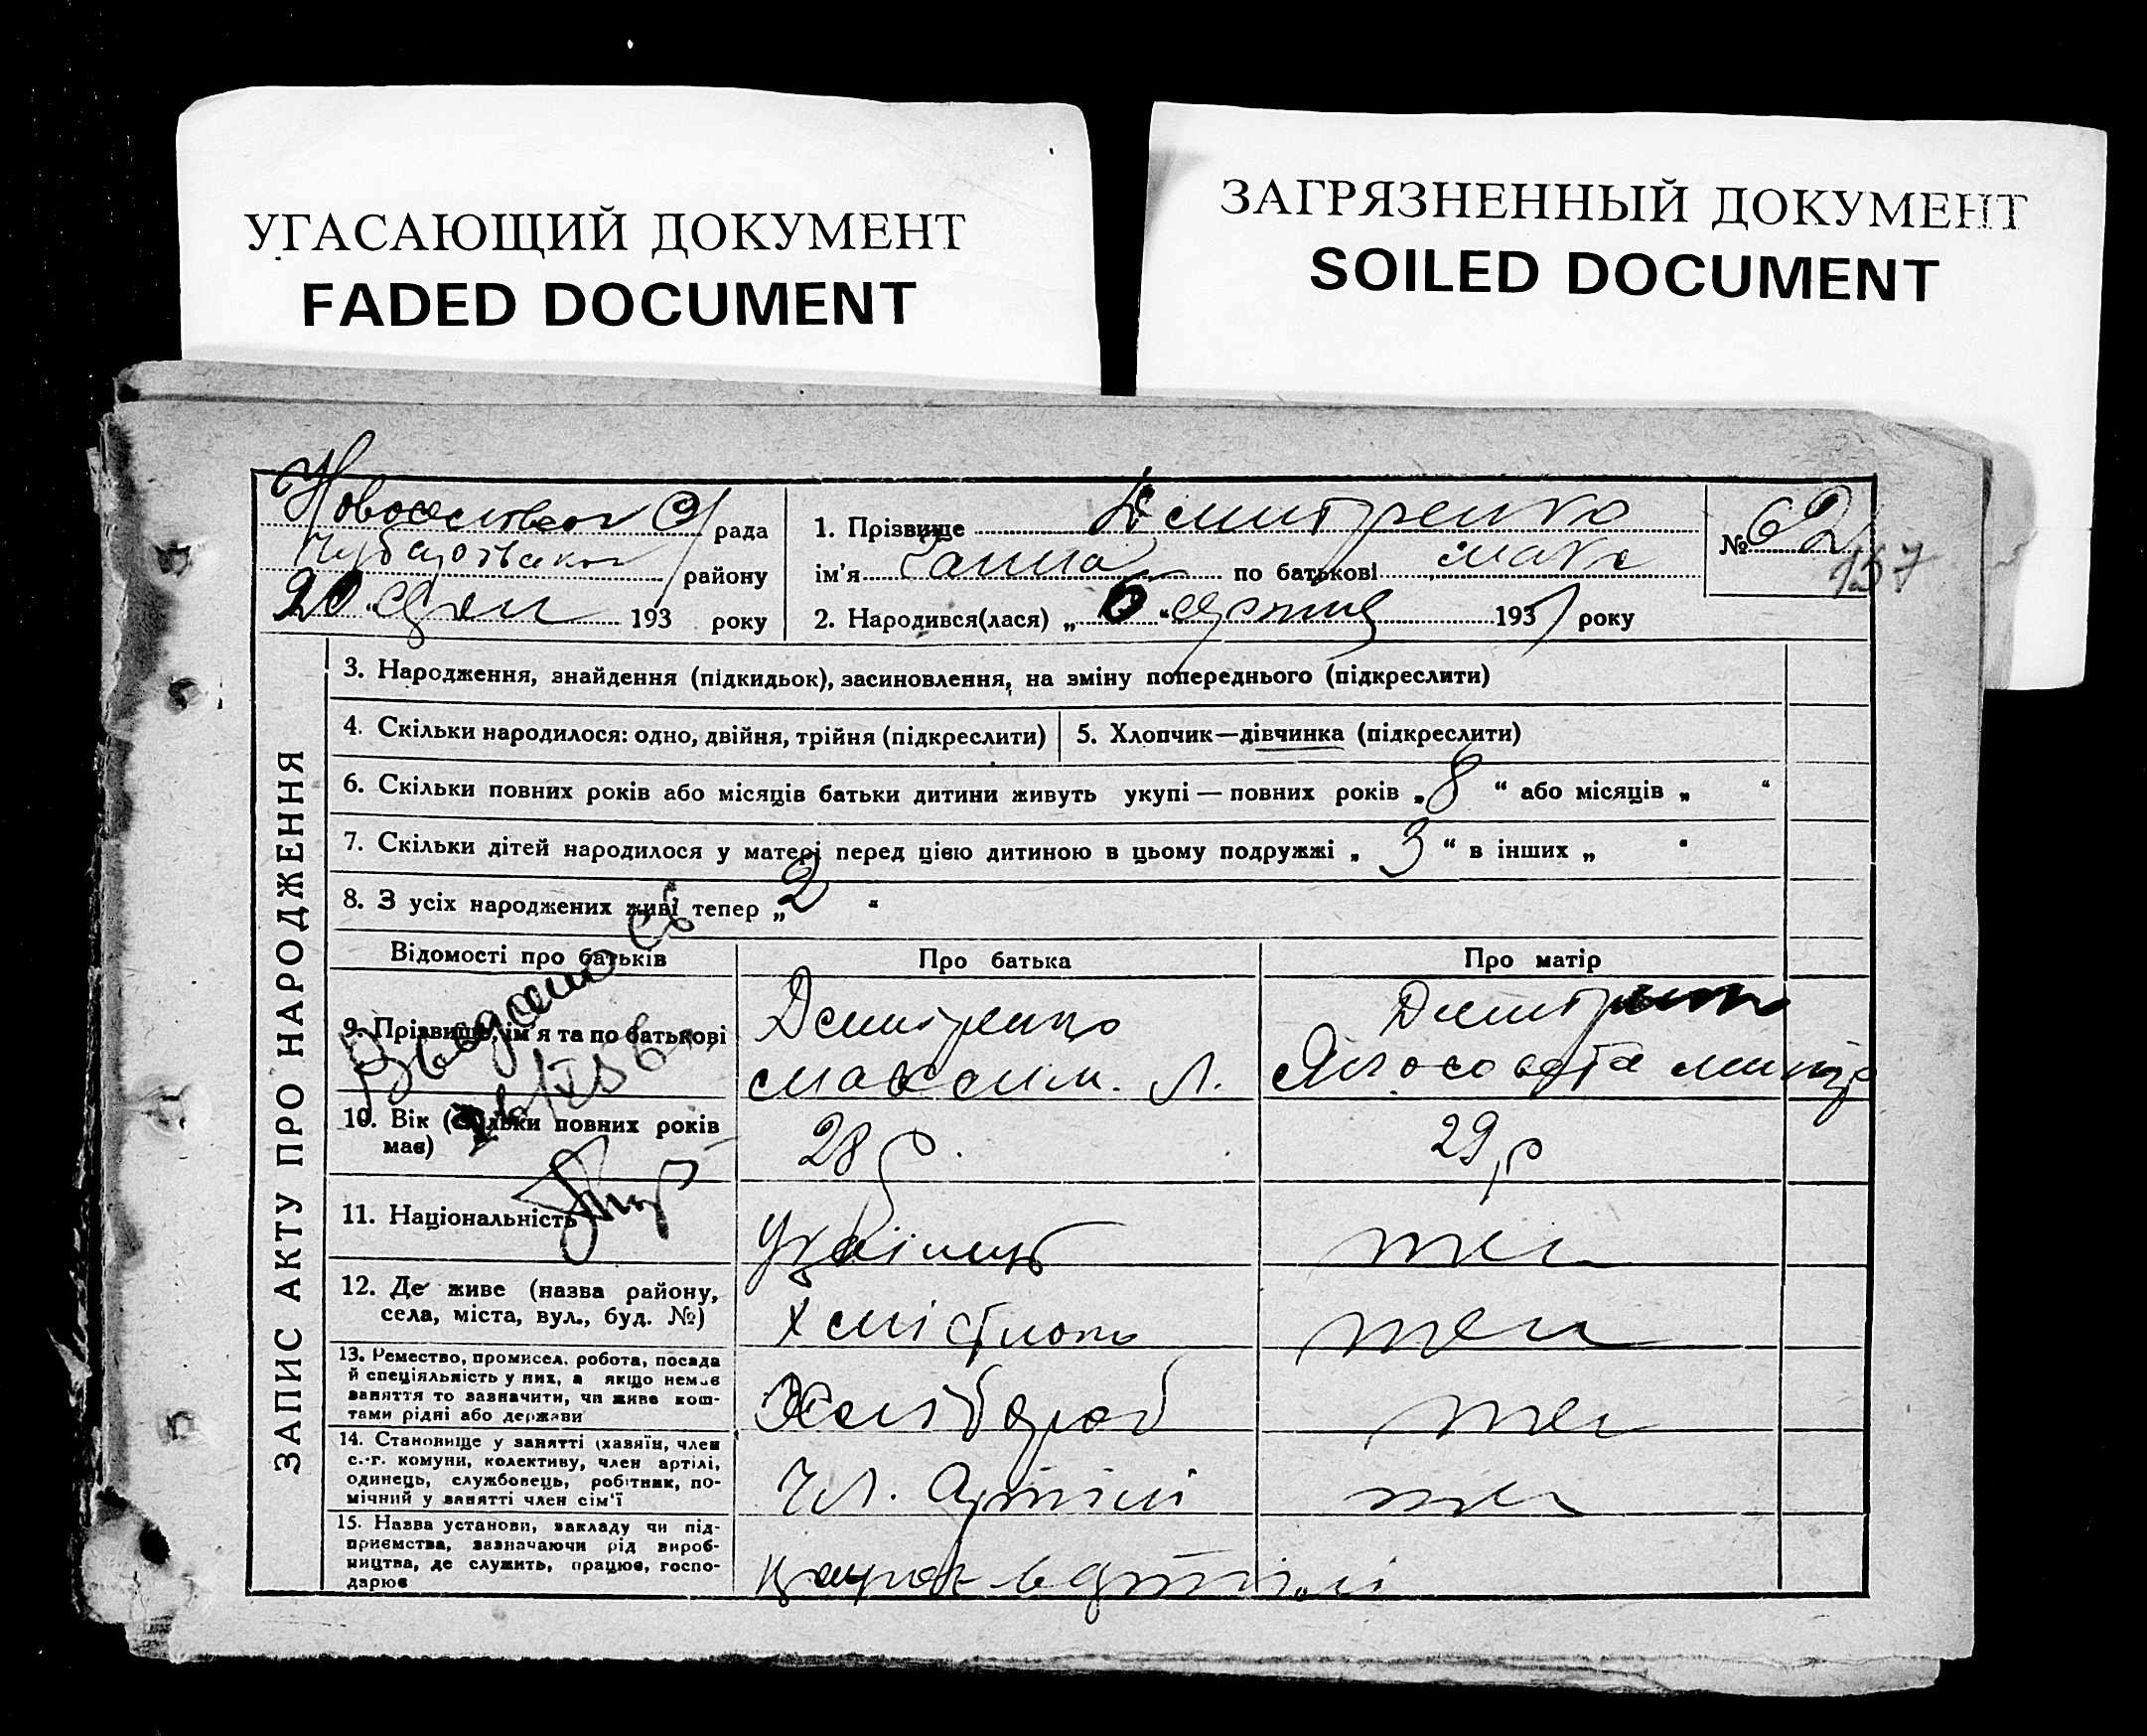 УГАСАЮЩИЙ ДОКУМЕНТ
FADED DOCUMENT
ЗАГРЯЗНЕННЫЙ ДОКУМЕНТ
SOILED DOCUMENT
рада
району
20 193 року
1. Прізвище Демитренко
ім'я Ганна по батькові макс
2. Народився(лася) „6“ серпня 1937 року
№ 62
157
ЗАПИС АКТУ ПРО НАРОДЖЕННЯ
3. Народження, знайдення (підкидьок), засиновлення, на зміну попереднього (підкреслити)
4. Скільки народилося: одно, двійня, трійня (підкреслити)
5. Хлопчик—дівчинка (підкреслити)
6. Скільки повних років або місяців батьки дитини живуть укупі — повних років „8“ або місяців „ “
7. Скільки дітей народилося у матері перед цією дитиною в цьому подружжі „3“ в інших „ “
8. З усіх народжених живі тепер „2“
Відомості про батьків
Про батька
Про матір
9. Прізвище, ім'я та по батькові
Демитренко
максим. Л.
10. Вік (скільки повних років
має)
28 р.
29 р
11. Національність
12. Де живе (назва району,
села, міста, вул., буд. №)
13. Ремество, промисел. робота, посада
й спеціяльність у них, а якщо немає
заняття то зазначити, чи живе кош-
тами рідні або держави
Хлібороб
14. Становище у занятті (хазяїн, член
с.-г. комуни, колективу, член артілі,
одинець, службовець, робітник, по-
мічний у занятті член сім'ї
Чл. Артілі
15. Назва установи, закладу чи під-
приємства, зазначаючи рід вироб-
ництва, де служить, працює, госпо-
дарює
в артілі